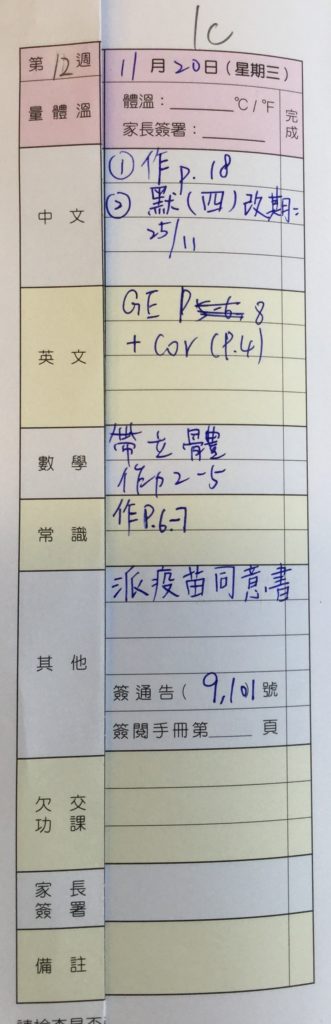 1C
第 12 週
11 月 20 日 (星期三)
量體溫
體溫：______ °C / °F
家長簽署：______
完成
中文
① 作 p. 18
② 默(四)改期：
25/11
英文
GE P 5-6 8
+ cor (P.4)
數學
帶立體
作p 2-5
常識
作P.6-7
其他
派疫苗同意書
簽通告( 9,101 號
簽閱手冊第____ 頁
欠交
功課
家長
簽署
備註